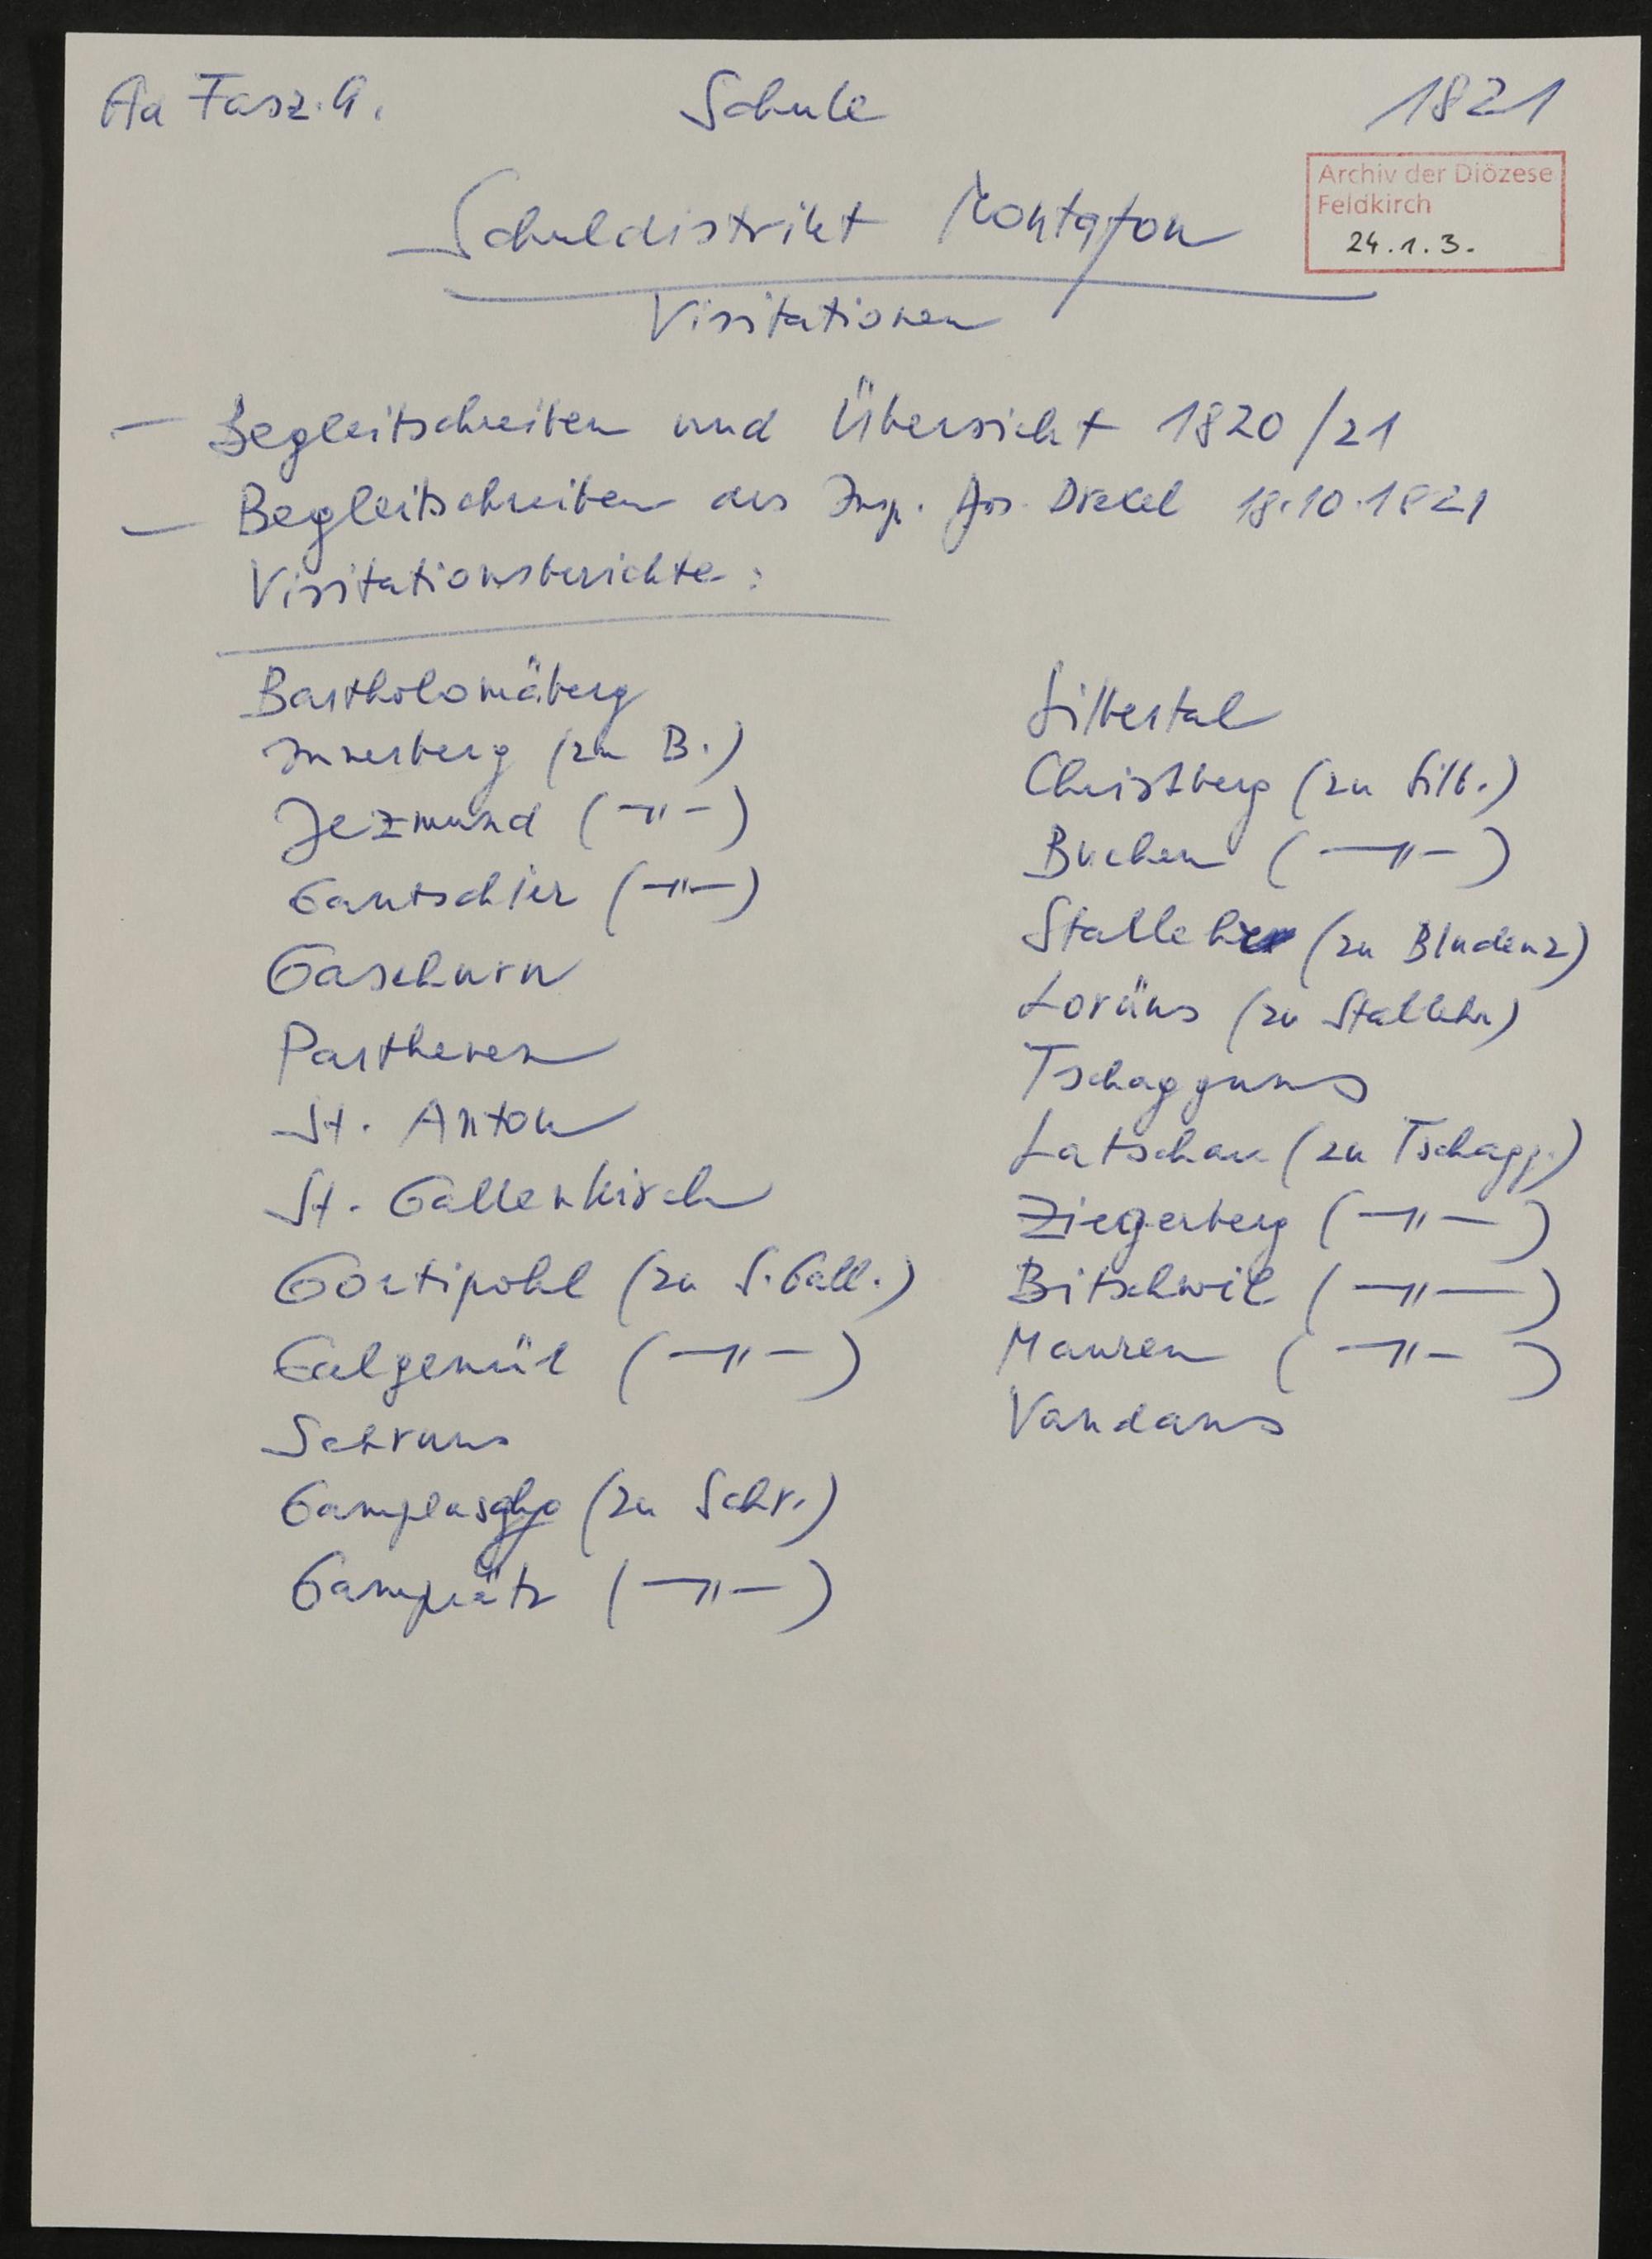 Aa Fasz. 9.
Schule
1821
Archiv der Diözese
Feldkirch
24.1.3.
Schuldistrikt Montafon
Visitationen
— Begleitschreiben und Übersicht 1820/21
— Begleitschreiben des Insp. Jos. Drexel 18.10.1821
Visitationsberichte:
Bartholomäberg
Innerberg (zu B.)
Jezmund (—"—)
Gantschier (—"—)
Gaschurn
Parthenen
St. Anton
St. Gallenkirch
Gortipohl (zu S. Gall.)
Galgenül (—"—)
Schruns
(zu Schr.)
Gamprätz (—"—)
Silbertal
Christberg (zu Silb.)
Buchen (—"—)
Stallehr (zu Bludenz)
Lorüns (zu Stallehr)
Tschagguns
Latschau (zu Tschagg.)
Ziegerberg (—"—)
Bitschwil (—"—)
Mauren (—"—)
Vandans